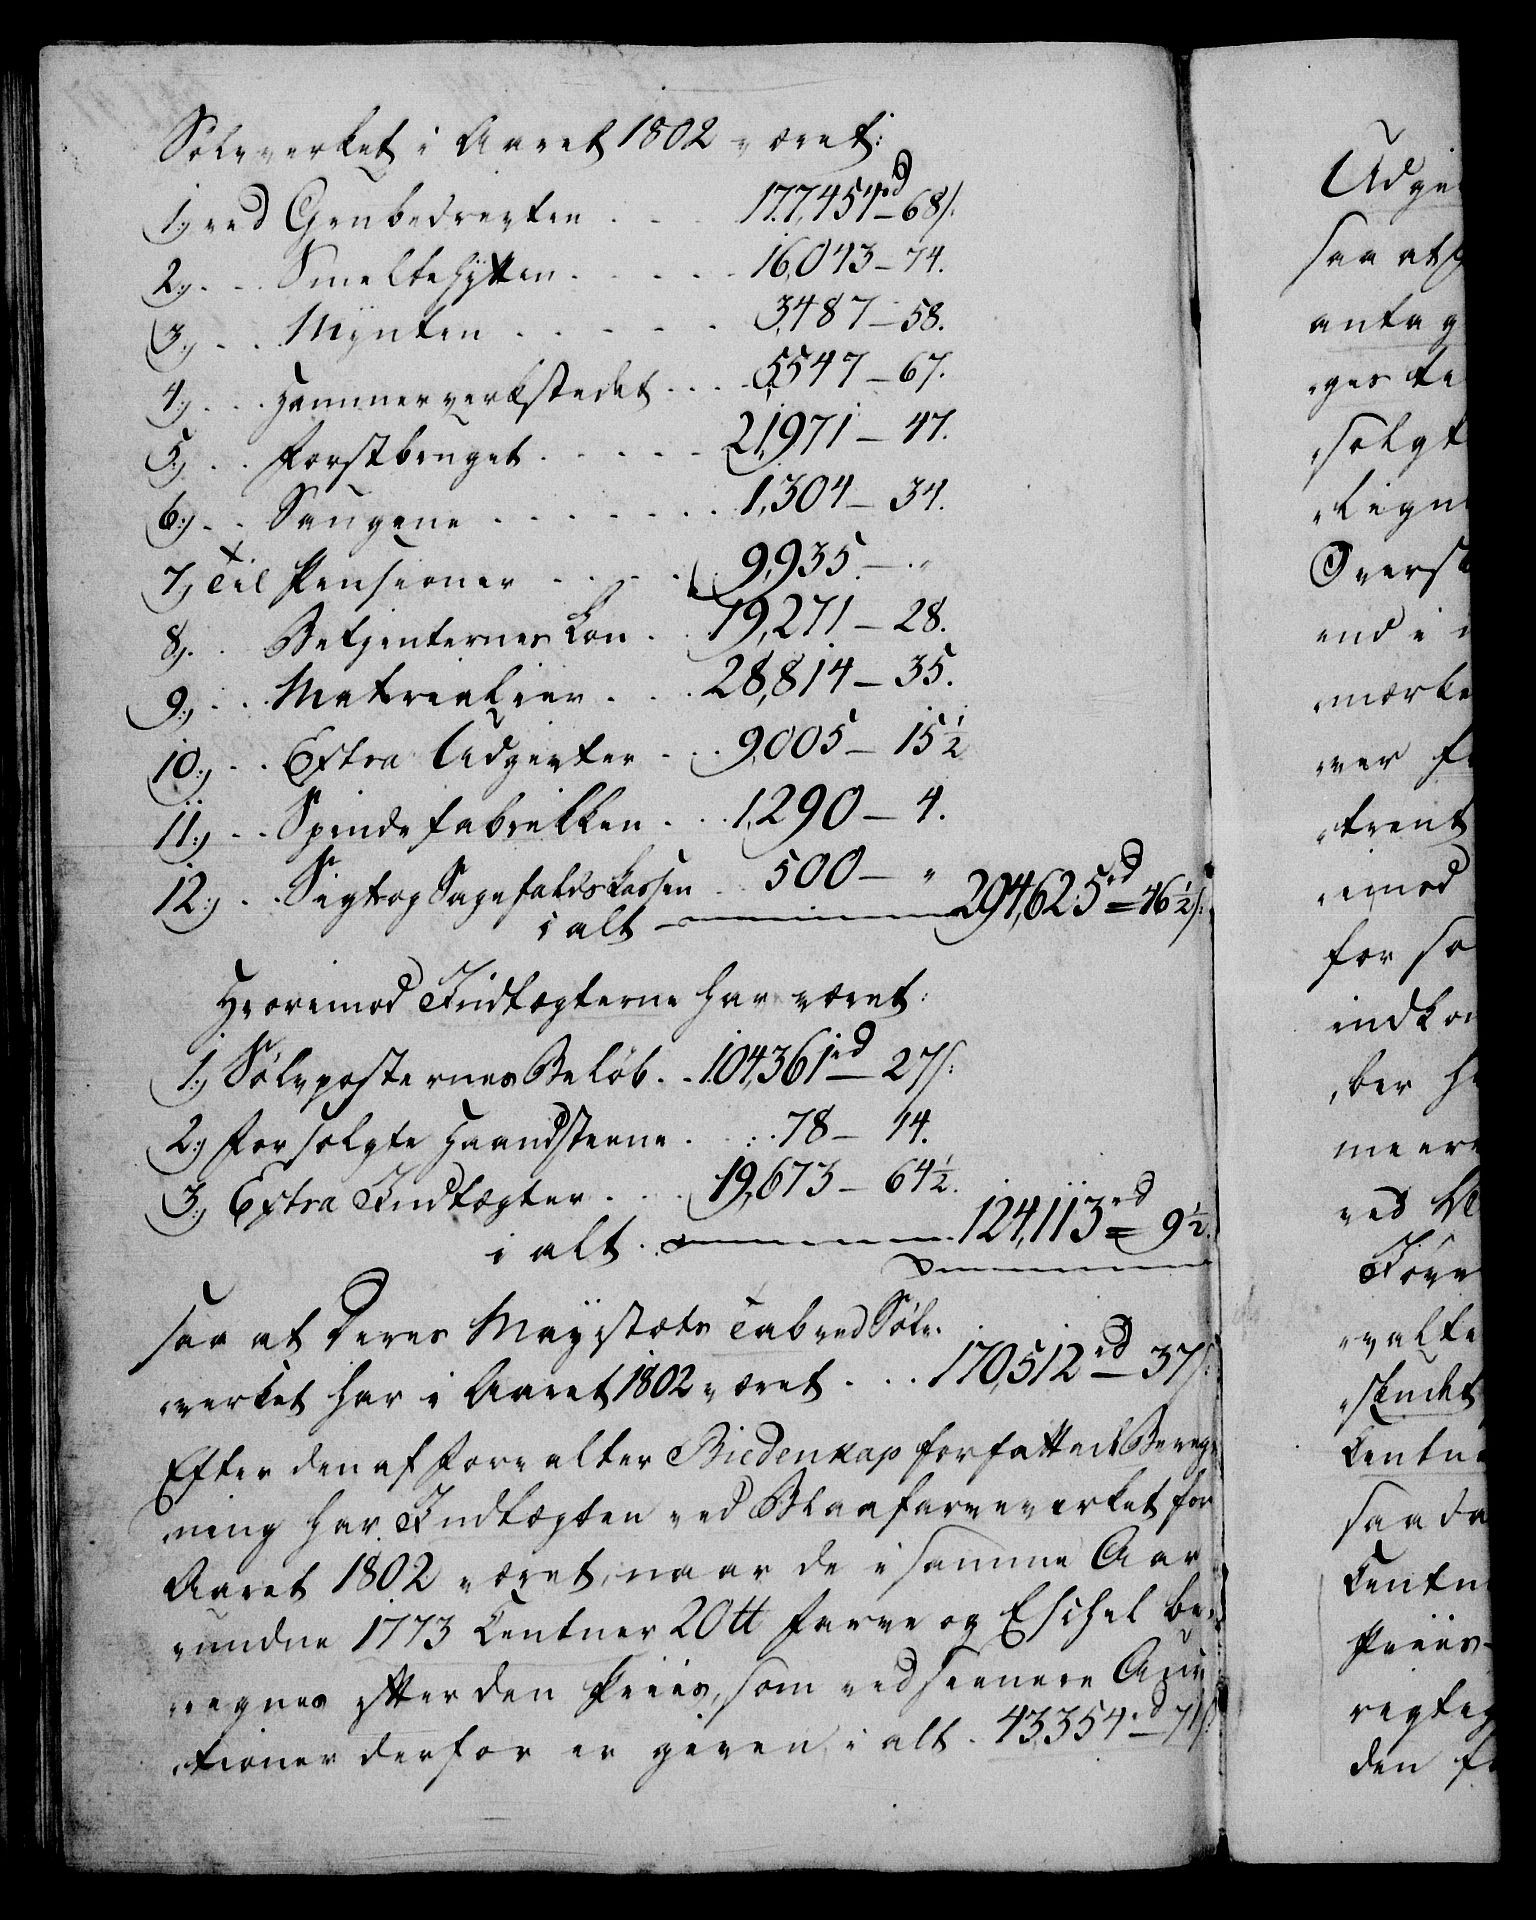 Sølvverket i Aaret 1802 været:
1.) ved Grubedrevten . . . 177,454 rd – 68 s.
2.) . . Smeltehytten . . . . . 16,043 – 74.
3.) . . Mynten . . . . . . 3,487 – 58.
4.) . . Hammerverkstedet . . . . 5,547 – 67.
5.) . . Forstbruget . . . . . 21,971 – 47.
6.) . . Saugene . . . . . . . 1,304 – 34.
7.) Til Pensioner . . . . . 9,935 – "
8.) . . Betjenternes Løn . . . 19,271 – 28.
9.) . . Materialier . . . . 28,814 – 35.
10.) . . Extra Udgivter . . . 9,005 – 15½
11.) . . Spindefabrikken . . . 1,290 – 4.
12.) . . Sigt og Sagefaldskassen . . 500 – "
i alt — 294,625 rd = 46½ s:
Hvorimod Indtægterne har været:
1.) Sølvposternes Beløb . . 104,361 rd – 27 s:
2.) For solgte Haandsteene . . . . 78 – 14.
3.) Extra Indtægter . . . . 19,673 – 64½.
i alt . — 124,113 rd = 9½.
saa at Deres Mayestæts Tab ved Sølv-
verket har i Aaret 1802 været . . . 170,512 rd – 37 s:
Efter den af Forvalter Biedenkap forfattede Bereg-
ning har Indtægten ved Blaafarveverket for
Aaret 1802 været, naar de i samme Aar
vundne 1773 Centner 20 ℔ Farve og Eschel be-
regnes efter den Priis, som ved seenere Auc-
tioner derfor er given, i alt . 43354 rd – 71 s:
Udgi
saa at
antag
ges te
solgt
ligne
Overst
end i
mærke
ver f
trent
imod
for so
indko
ber h
meere
ved
Tøve
valte
skudet
Centne
saa da
Centn
Priis
rigtig
den f